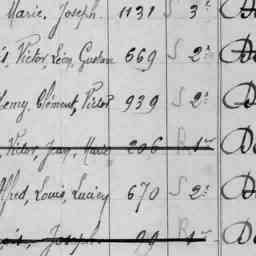 Marie, Joseph. 1131 S 3e
Victor, Léon, Gustave 669 S 2e
Remy, Clément, Victor 939 S 2e
Victor, Jean, Marie 206 R 1er
Alfred, Louis, Lucien 670 S 2e
Joseph. 99 R 1er